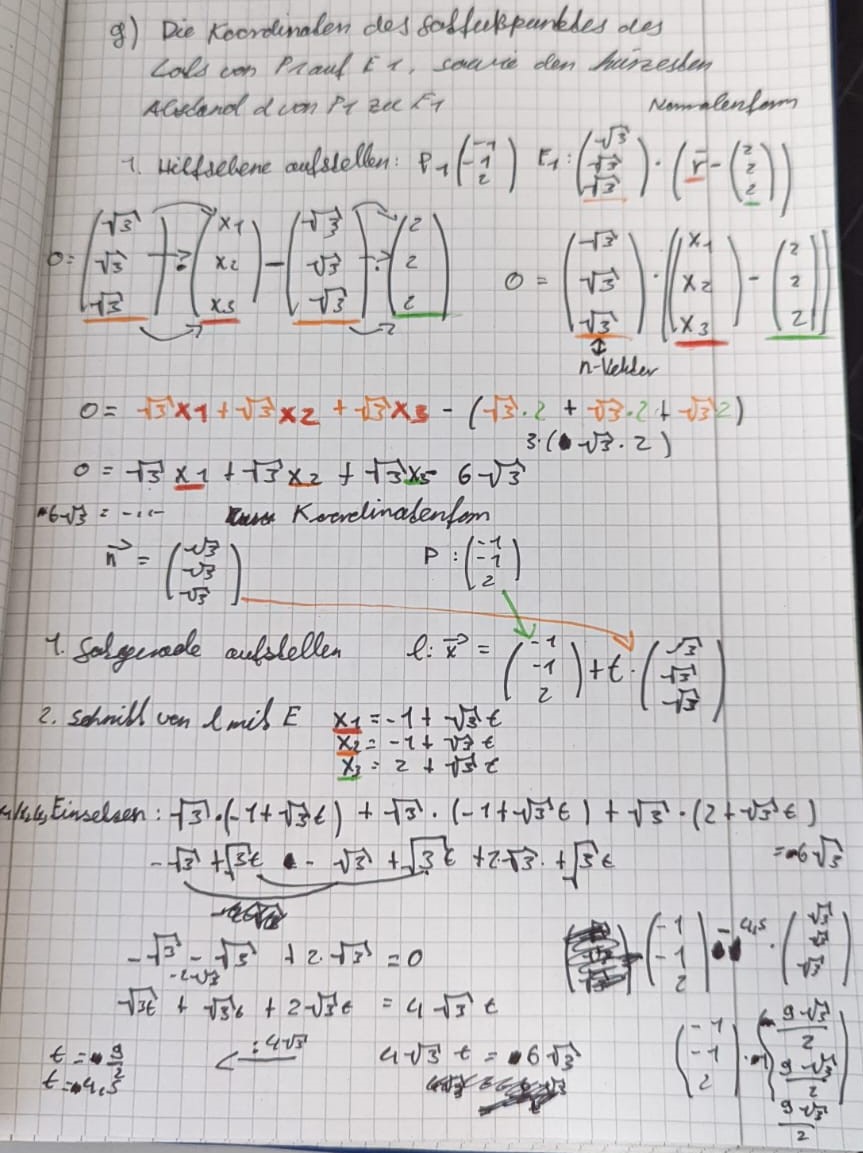 g) Die Koordinaten des Lotfußpunktes des
Lots von P1 auf E1, sowie den kürzesten
Abstand d von P1 zu E1
Normalenform
1. Hilfsebene aufstellen: P1 (-1 -1 2) E1: (√3 √3 √3) · (r - (2 2 2))
0 = (√3 √3 √3) · (x1 x2 x3) - (√3 √3 √3) · (2 2 2)
0 = (√3 √3 √3) · ((x1 x2 x3) - (2 2 2))
n-Vektor
0 = √3 x1 + √3 x2 + √3 x3 - (√3·2 + √3·2 + √3 2)
3·(√3·2)
0 = √3 x1 + √3 x2 + √3 x3 - 6√3
6√3 = -..- Koordinatenfom
n⃗ = (√3 √3 √3) P: (-1 -1 2)
1. Lotgerade aufstellen l: x⃗ = (-1 -1 2) + t · (√3 √3 √3)
2. Schnitt von l mit E x1 = -1 + √3 t
x2 = -1 + √3 t
x3 = 2 + √3 t
Einsetzen: √3·(-1+√3t) + √3·(-1+√3t) + √3·(2+√3t)
= 6√3
-√3 + √3t - √3 + √3t + 2√3 · + √3t
-√3 - √3 + 2·√3 = 0
-2√3
√3t + √3t + 2√3t = 4√3 t
(-1 -1 2) - 4,5 · (√3 √3 √3)
t = 9/2
t = 4,5
: 4√3
4√3 t = 6√3
(-1 -1 2) · (9√3/2 9√3/2 9√3/2)